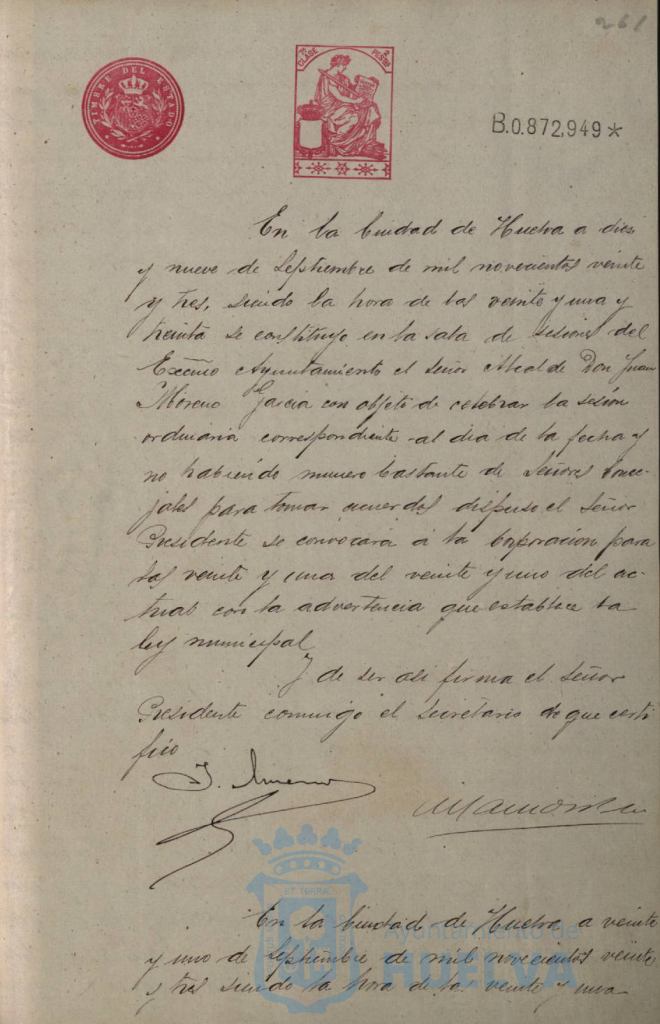 261
TIMBRE DEL ESTADO
7ª CLASE
2 PESTAS
B.0.872,949*
En la Ciudad de Huelva a diez
y nueve de Septiembre de mil novecientos veinte
y tres, siendo la hora de las veinte y una y
treinta se constituyo en la sala de sesiones del
Excmo Ayuntamiento el señor Alcalde Don Juan
Moreno Garcia con objeto de celebrar la sesion
ordinaria correspondiente al dia de la fecha y
no habiendo numero bastante de Señores Conce-
jales para tomar acuerdos dispuso el Señor
Presidente se convocara á la Corporacion para
las veinte y una del veinte y uno del ac-
tual con la advertencia que establece la
ley municipal
Y de ser asi firma el Señor
Presidente conmigo el Secretario de que certi
fico
J. Moreno
En la Ciudad de Huelva a veinte
y uno de Septiembre de mil novecientos veinte
y tres siendo la hora de las veinte y una
Ayuntamiento de
HUELVA